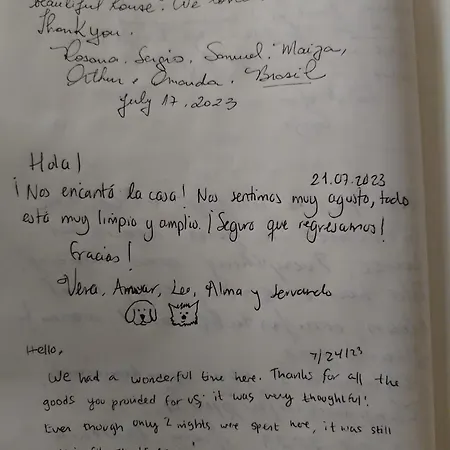 beautiful house. We
Thank you.
Rosana, Sergio, Samuel, Maiza,
Arthur e Amanda. Brasil
July 17, 2023
Hola!
21.07.2023
¡Nos encantó la casa! Nos sentimos muy agusto, todo
está muy limpio y amplio. ¡Seguro que regresamos!
Gracias!
Vera, Anwar, Leo, Alma y Servando
Hello,
7/24/23
We had a wonderful time here. Thanks for all the
goods you provided for us; it was very thoughtful!
Even though only 2 nights were spent here, it was still